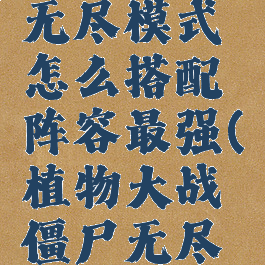 无尽模式
怎么搭配
阵容最强(
植物大战
僵尸无尽